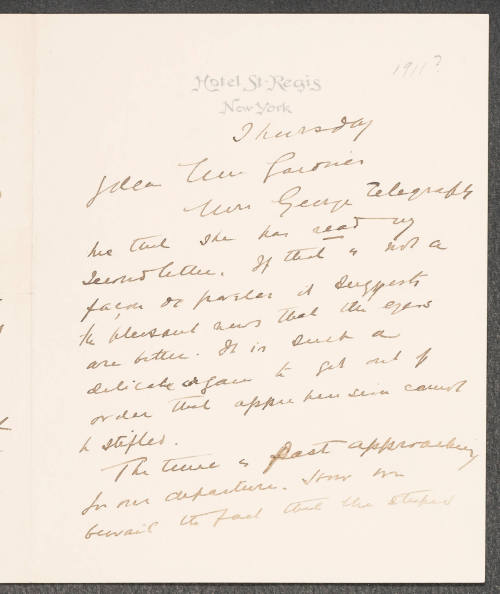 1911?
Hotel St. Regis
New York
Thursday
Dear Mrs Gardner
Mrs George Telegraphs
me that she has read my
second letter. If that is not a
façon de parler it suggests
the pleasant news that the eyes
are better. It is such a
delicate organ to get out of
order that apprehension cannot
be stifled.
The time is fast approaching
for our departure. How we
bewail the fact that the stupid